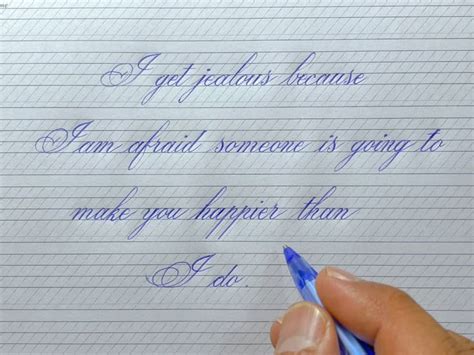 I get jealous because
I am afraid someone is going to
make you happier than
I do.